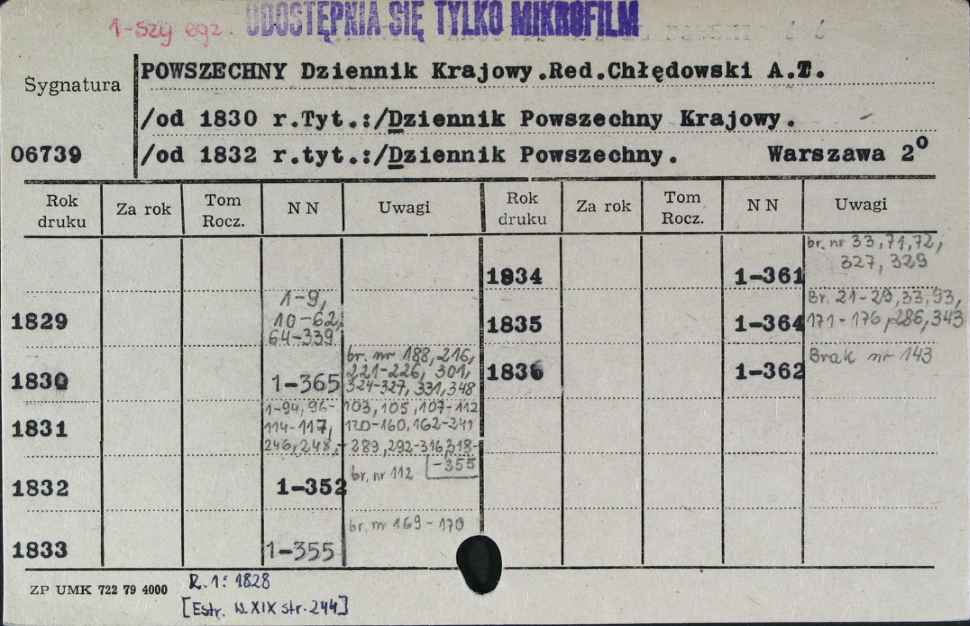 1-szy egz. UDOSTĘPNIA SIĘ TYLKO MIKROFILM
Sygnatura
06739
POWSZECHNY Dziennik Krajowy.Red.Chłędowski A.T.
/od 1830 r.Tyt.:/Dziennik Powszechny Krajowy.
/od 1832 r.tyt.:/Dziennik Powszechny. Warszawa 2⁰
Rok druku Za rok Tom Rocz. N N Uwagi Rok druku Za rok Tom Rocz. N N Uwagi
1829 1-9,
10-62,
64-339
1830 1-365 br. nr 188, 216,
221-226, 301,
324-327, 331, 348
1831 1-94, 96- 103, 105, 107-112
114-117, 120-160, 162-241
246, 248,- 289, 292-316, 318-
-355
1832 1-352 br. nr 112
1833 1-355 br. nr 169-170
1834 1-361 br. nr 33, 71, 72,
327, 329
1835 1-364 Br. 21-29, 33, 93,
171-176, 286, 343
1836 1-362 Brak nr 143
ZP UMK 722 79 4000
R.1: 1828
[Estr. W.XIX str. 244]